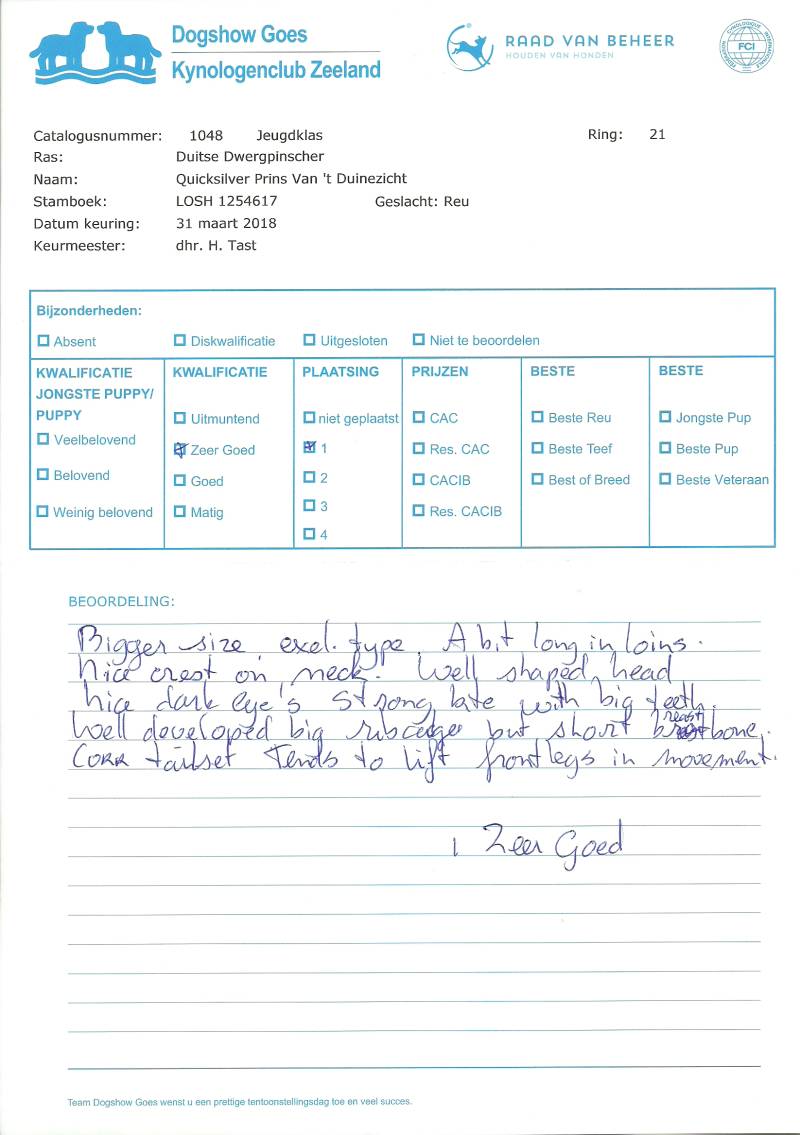 Dogshow Goes
Kynologenclub Zeeland
RAAD VAN BEHEER
HOUDEN VAN HONDEN
FCI
Catalogusnummer: 1048 Jeugdklas Ring: 21
Ras: Duitse Dwergpinscher
Naam: Quicksilver Prins Van 't Duinezicht
Stamboek: LOSH 1254617 Geslacht: Reu
Datum keuring: 31 maart 2018
Keurmeester: dhr. H. Tast
Bijzonderheden:
Absent Diskwalificatie Uitgesloten Niet te beoordelen
KWALIFICATIE
JONGSTE PUPPY/
PUPPY
Veelbelovend
Belovend
Weinig belovend
KWALIFICATIE
Uitmuntend
Zeer Goed
Goed
Matig
PLAATSING
niet geplaatst
1
2
3
4
PRIJZEN
CAC
Res. CAC
CACIB
Res. CACIB
BESTE
Beste Reu
Beste Teef
Best of Breed
BESTE
Jongste Pup
Beste Pup
Beste Veteraan
BEOORDELING:
Bigger size, exel. type. A bit long in loins.
Nice crest on neck. Well shaped head
nice dark eye's Strong bite with big teeth.
Well developed big ribcage but short breastbone.
Corr tailset Tends to lift front legs in movement.
1 Zeer Goed
Team Dogshow Goes wenst u een prettige tentoonstellingsdag toe en veel succes.